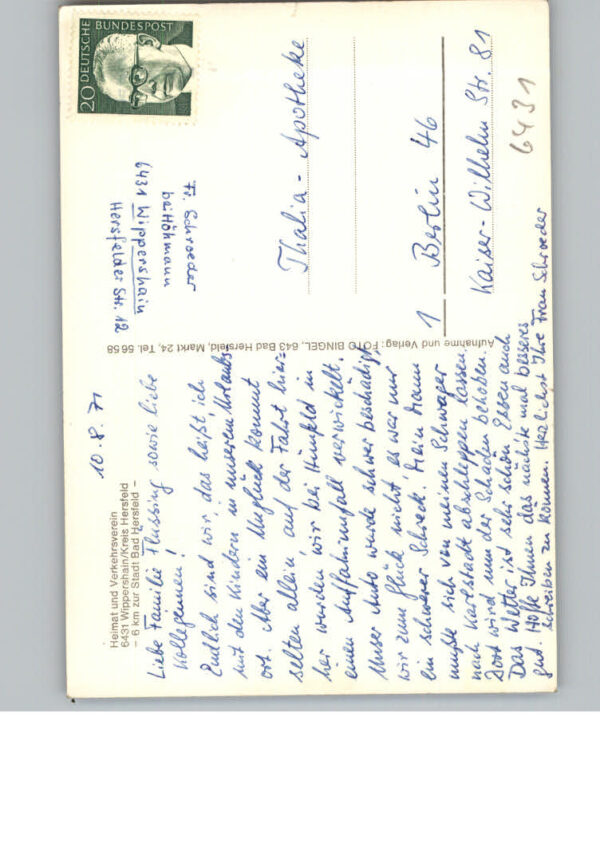 Heimat und Verkehrsverein
6431 Wippershain/Kreis Hersfeld
– 6 km zur Stadt Bad Hersfeld –
10.8.71
Liebe Familie Flüssing sowie liebe
Kolleginnen!
Endlich sind wir, das heißt ich
mit den Kindern in unserem Urlaubs
ort. Aber ein Unglück kommt
selten allein, auf der Fahrt hier=
her wurden wir bei Hünfeld in
einen Auffahrunfall verwickelt.
Unser Auto wurde schwer beschädigt
wir zum Glück nicht, es war nur
ein schwerer Schreck. Mein Mann
mußte sich von meinem Schwager
nach Karlstadt abschleppen lassen,
Dort wird nun der Schaden behoben.
Das Wetter ist sehr schön, Essen auch
gut. Hoffe Ihnen das nächste mal besseres
schreiben zu können. Herzlichst Ihre Frau Schroeder
Aufnahme und Verlag: FOTO BINGEL, 643 Bad Hersfeld, Markt 24, Tel. 56 58
Fr. Schroeder
bei Höhmann
6431 Wippershain
Hersfelder Str. 12
20 DEUTSCHE BUNDESPOST
Thalia - Apotheke
1 Berlin 46
Kaiser-Wilhelm Str. 81
6431